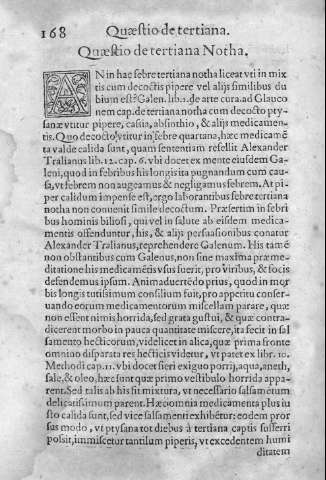 168 Quæstio de tertiana.
Quæstio de tertiana Notha.
AN in hac febre tertiana notha liceat vti in mix
tis cum decoctis pipere vel alijs similibus du
bium est? Galen. lib. 1. de arte cura. ad Glauco
nem cap. de tertiana notha cum decocto pty-
sanæ vtitur pipere, casia, absinthio, & alijs medicamen-
tis. Quo decocto vtitur in febre quartana, hæc medicamē
ta valde calida sunt, quam sententiam refellit Alexander
Tralianus lib. 12. cap. 6. vbi docet ex mente eiusdem Gale-
ni, quod in febribus his longis ita pugnandum cum cau-
sa, vt febrem non augeamus & negligamus febrem. At pi-
per calidum impense est, ergo laborantibus febre tertiana
notha non conuenit simile decoctum. Præsertim in febri
bus hominis biliosi, qui vel in salute ab eisdem medica-
mentis offenduntur, his, & alijs persuasionibus conatur
Alexander Tralianus, reprehendere Galenum. His tamē
non obstantibus cum Galenus, non sine maxima præme-
ditatione his medicamētis vsus fuerit, pro viribus, & socis
defendemus ipsum. Animaduertēdo prius, quod in mor
bis longis tutissimum consilium fuit, pro appetitu conser-
uando eorum medicamentorum miscellam parare, quæ
non essent nimis horrida, sed grata gustui, & quæ contra-
dicerent morbo in pauca quantitate miscere, ita fecit in sal
samento hecticorum, videlicet in alica, quæ prima fronte
omnino disparata res hecticis videtur, vt patet ex libr. 10.
Methodi cap. 11. vbi docet fieri exiguo porri, aqua, aneth,
sale, & oleo, hæc sunt quæ primo vestibulo horrida appa-
rent. Sed talis ab his fit mixtura, vt necessario salsamētum
delicatissimum parent. Hæc omnia medicamenta plus iu
sto calida sunt, sed vice salsamenti exhibētur: eodem pror
sus modo, vt ptysana tot diebus à tertiana captis sufferri
possit, immiscetur tantilum piperis, vt excedentem humi
ditatem